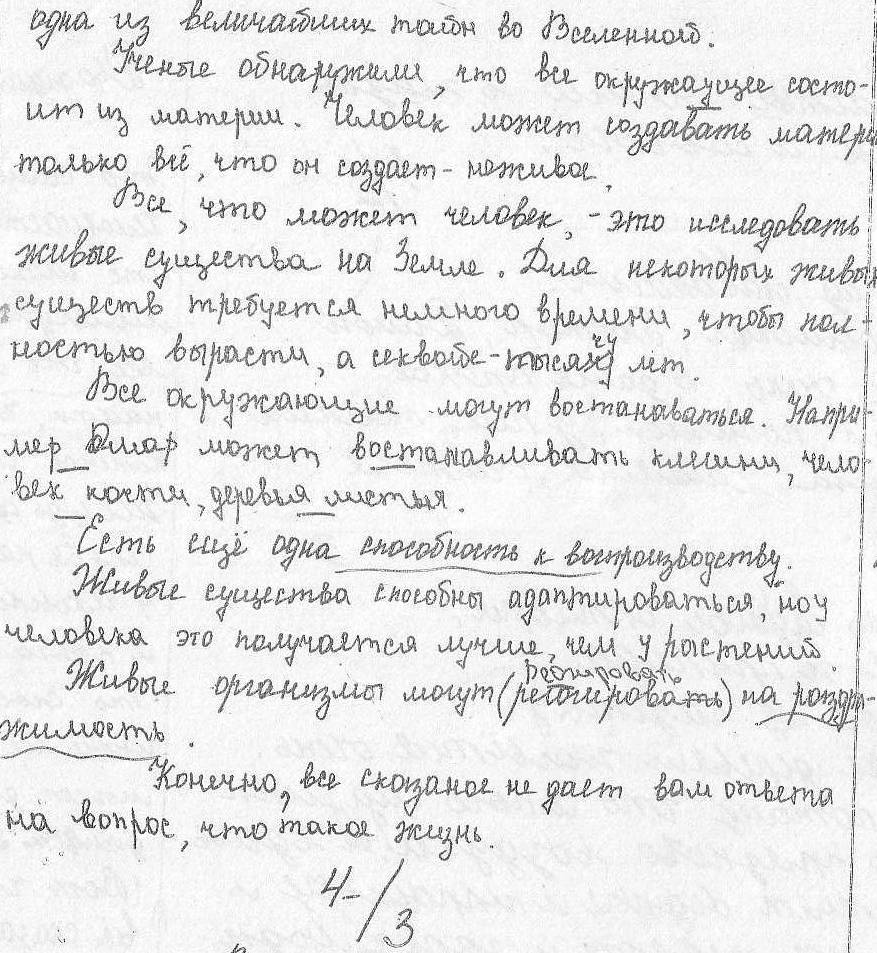 одна из величайших тайн во Вселенной.
Ученые обнаружили, что все окружаущее состо-
ит из материи. Человек может создавать матери
только всё, что он создает - неживое.
Все, что может человек, - это исследовать
живые существа на Земле. Для некоторых живых
существ требуется немного времени, чтобы пол-
ностью вырасти, а секвойе - тысячу лет.
Все окружающие могут востанаваться. Напри-
мер Омар может востанавливать клешни, чело-
век кости, деревья листья.
Есть ещё одна способность к воспроизводству.
Живые существа способны адаптироваться, но у
человека это получается лучше, чем у растений.
Живые организмы могут (реогировать) на раздра-
реогировать
жимость.
Конечно, все сказаное не дает вам ответа
на вопрос, что такое жизнь.
4-/3